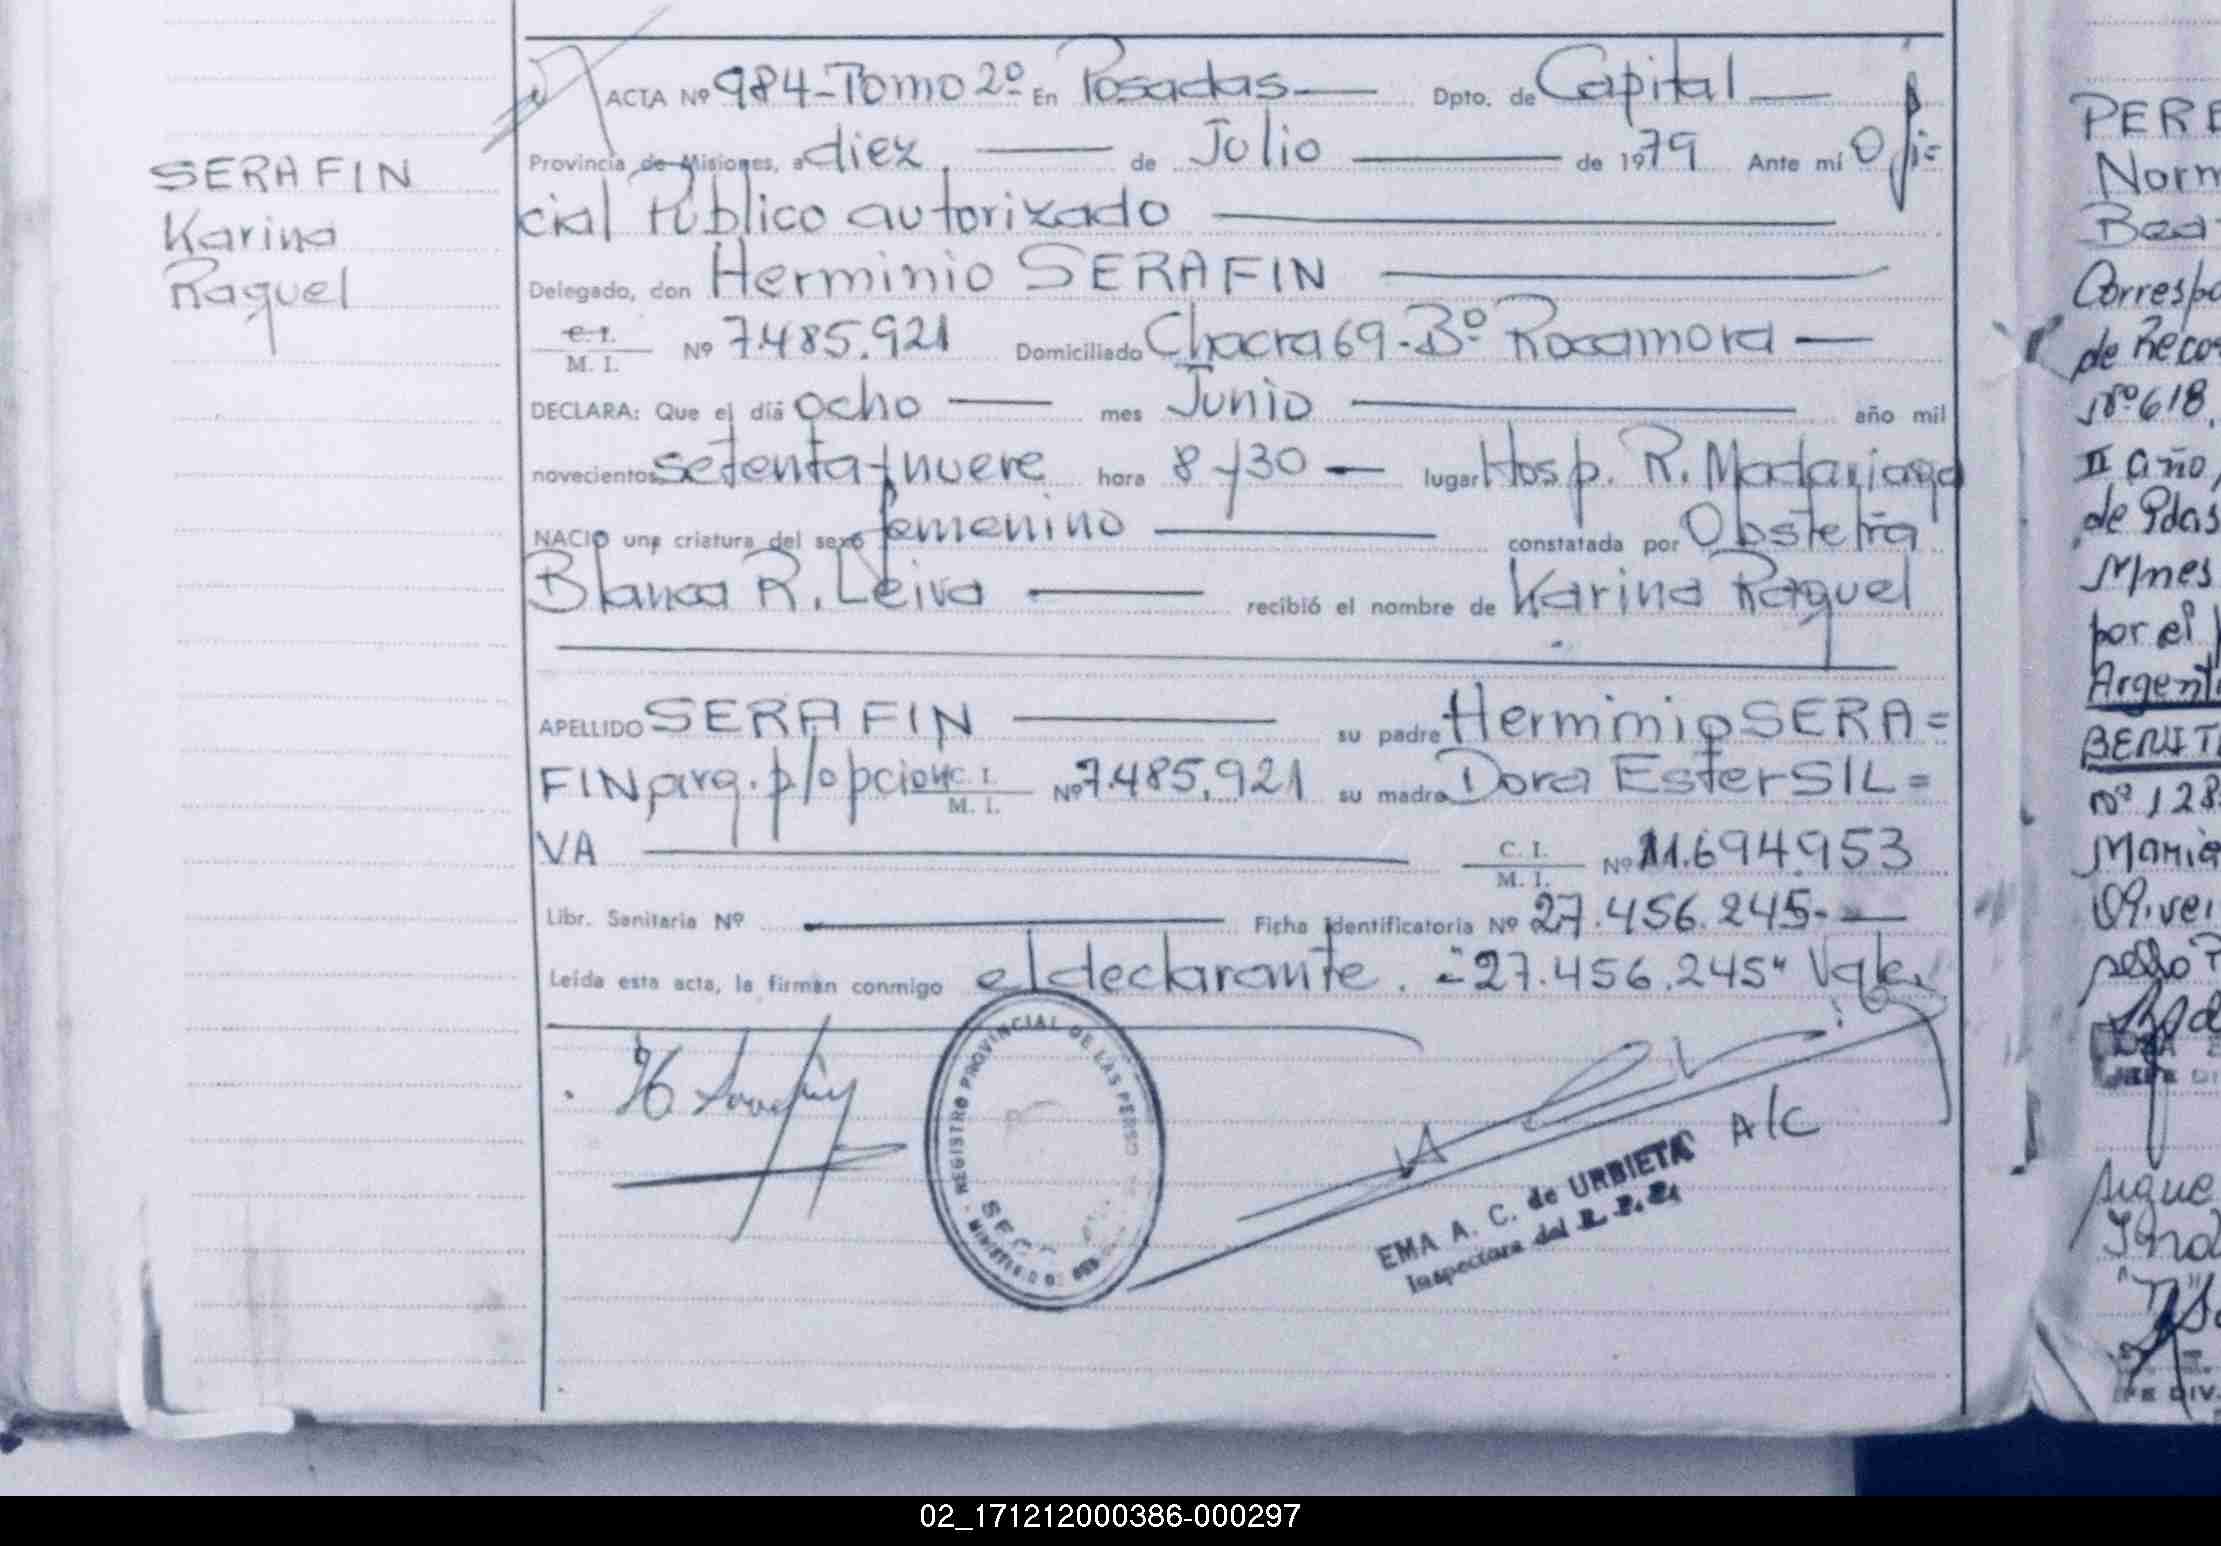 SERAFIN
Karina
Raquel
ACTA Nº 984-Tomo 2º En Posadas Dpto. de Capital
Provincia de Misiones, a diez de Julio de 1979 Ante mí Ofi=
cial Público autorizado
Delegado, don Herminio SERAFIN
C. I.
M. I. Nº 7.485.921 Domiciliado Chacra 69-Bº Rocamora
DECLARA: Que el día ocho mes Junio año mil
novecientos setenta y nueve hora 8 y 30 lugar Hosp. R. Madariaga
NACIO una criatura del sexo femenino constatada por Obstetra
Blanca R. Leiva recibió el nombre de Karina Raquel
APELLIDO SERAFIN su padre Herminio SERA=
FIN arg. p/opcion C. I. M. I. Nº 7.485.921 su madre Dora Ester SIL=
VA C. I. M. I. Nº 11.694.953
Libr. Sanitaria Nº Ficha Identificatoria Nº 27.456.245-
Leída esta acta, la firman conmigo el declarante. -"27.456.245" Vale.
H Serafin
REGISTRO PROVINCIAL DE LAS PERSO
A/C
EMA A. C. de URBIETA
Inspectora del R. P. P.
PERE
Norm
Bea
Correspo
de Reco
Nº 618,
II año,
de Pdas
M/nes
por el
Argenti
BENIT
Nº 128
Maria
Olivei
sello
sigue
DIV.
02_171212000386-000297